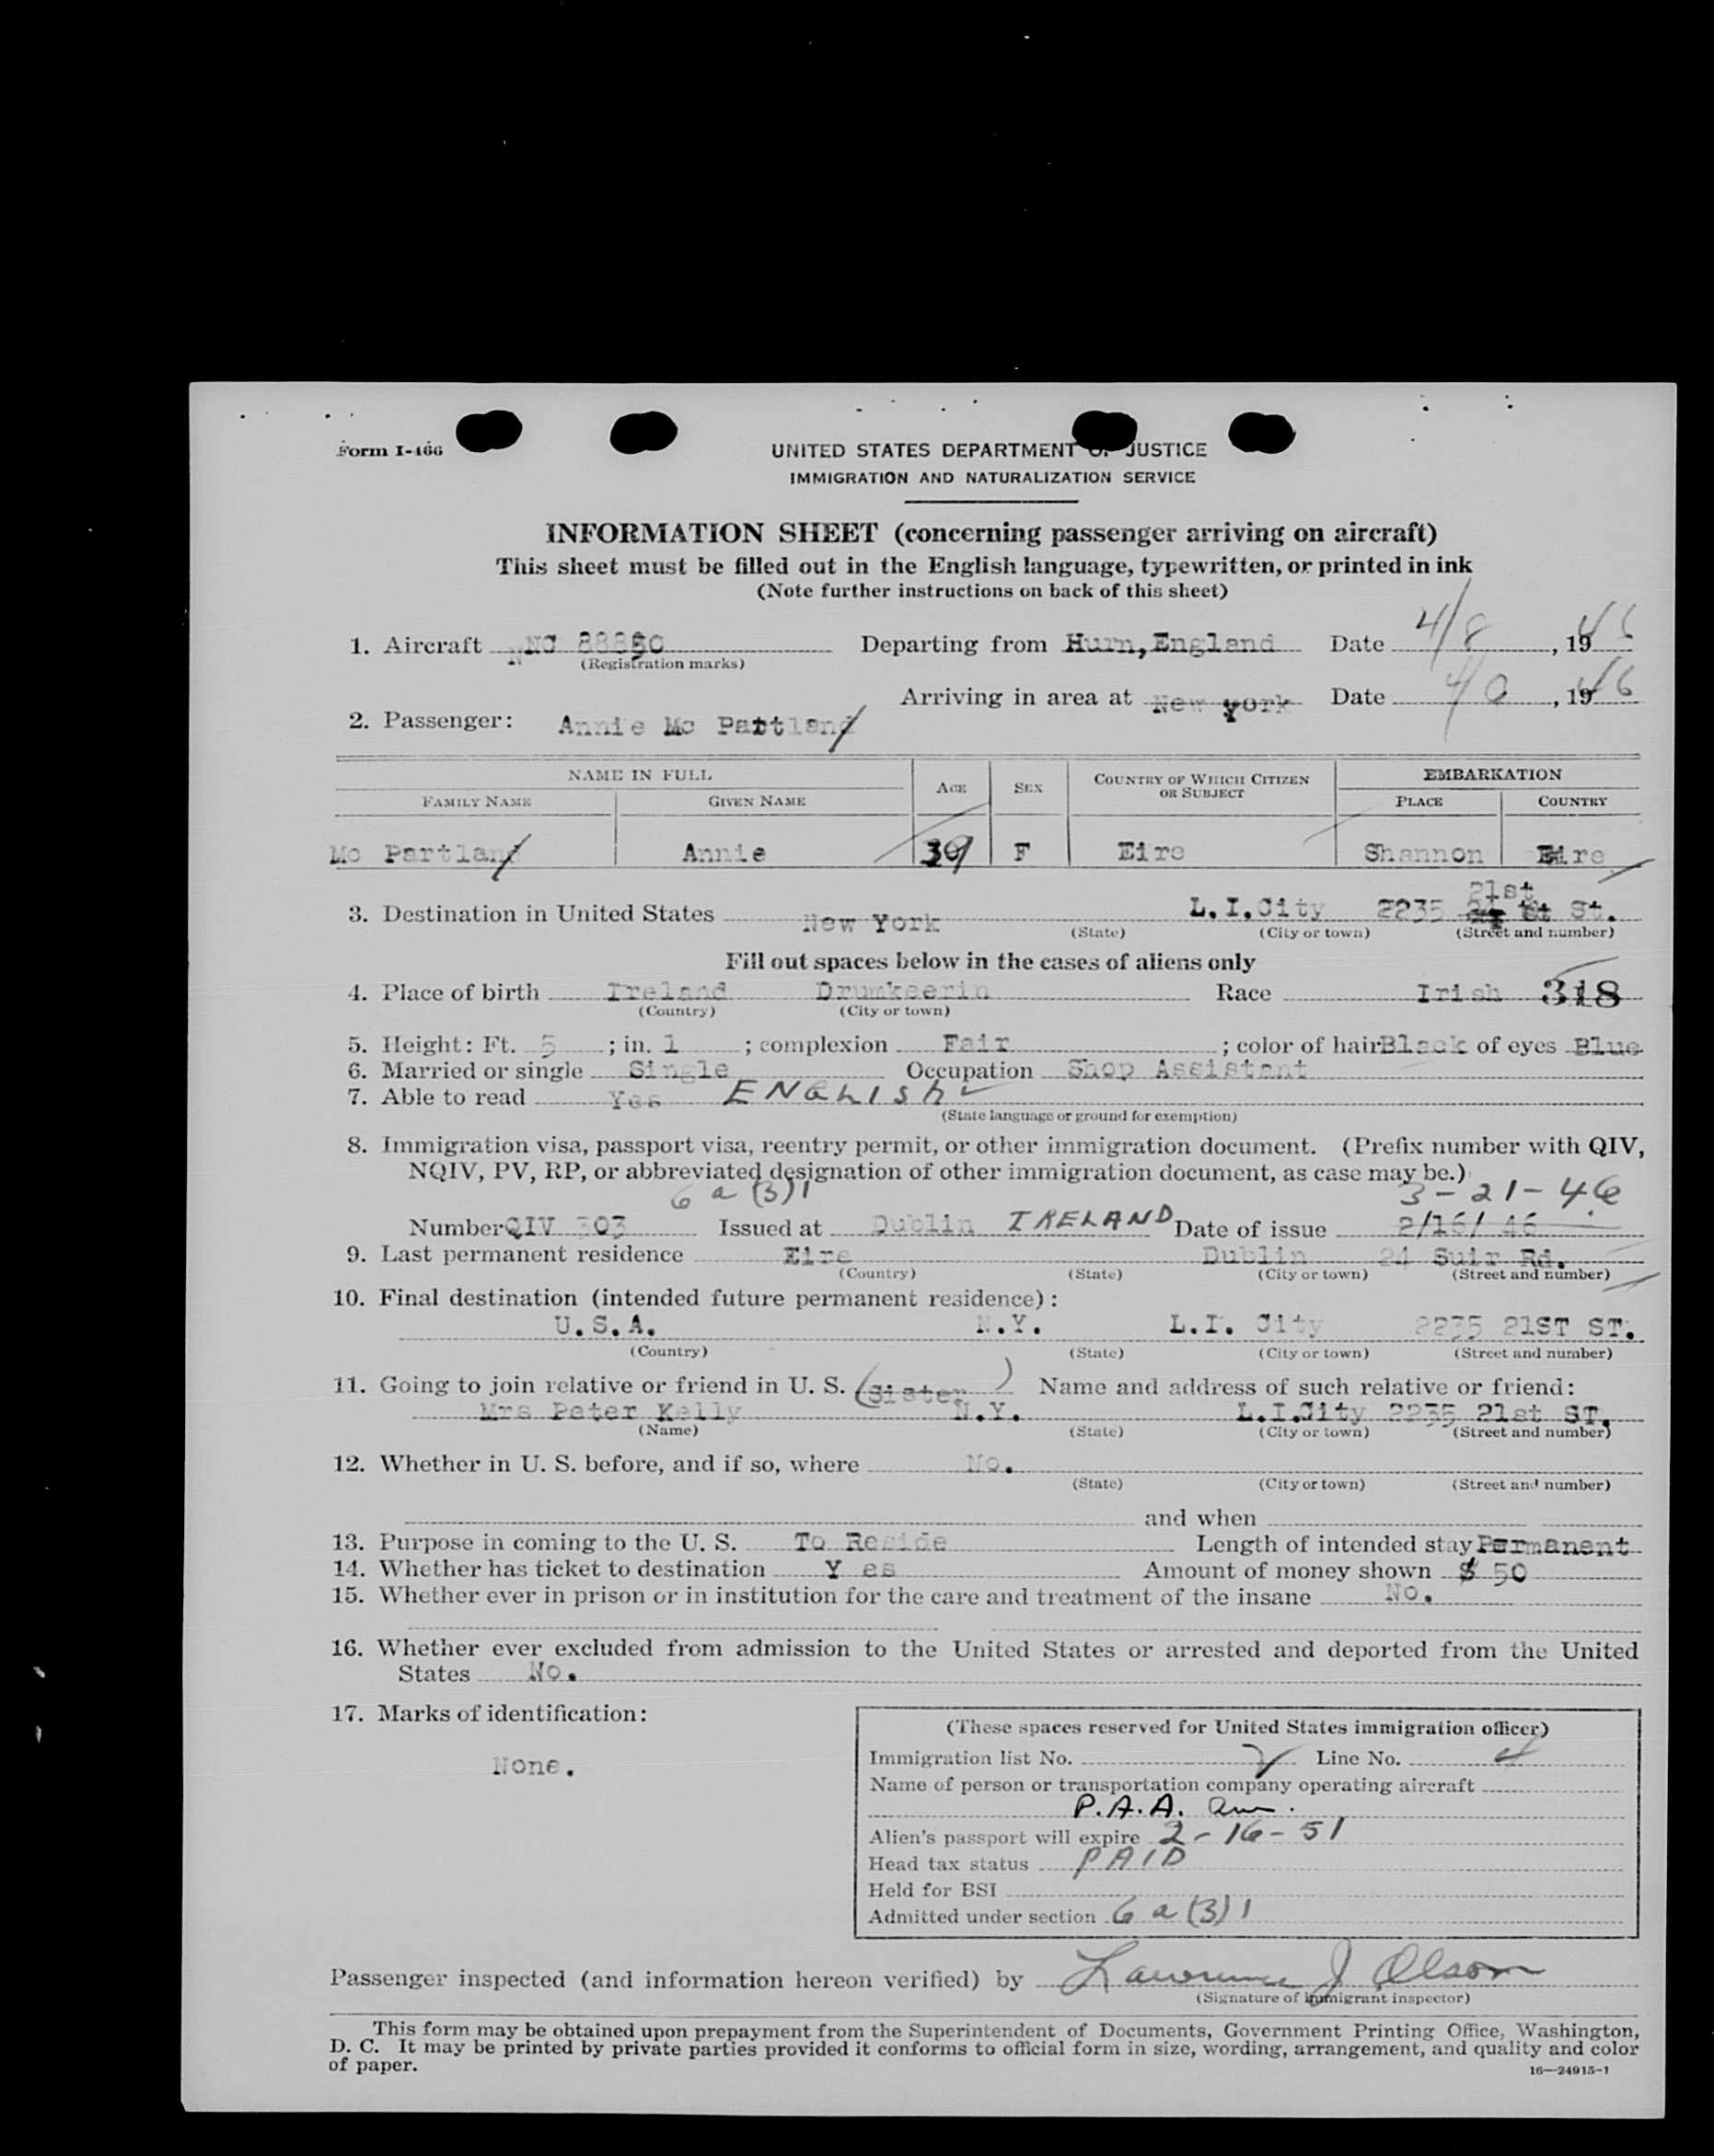 Form I-466
UNITED STATES DEPARTMENT OF JUSTICE
IMMIGRATION AND NATURALIZATION SERVICE
INFORMATION SHEET (concerning passenger arriving on aircraft)
This sheet must be filled out in the English language, typewritten, or printed in ink
(Note further instructions on back of this sheet)
1. Aircraft NC Departing from Hurn, England Date 4/8, 1946
(Registration marks)
Arriving in area at New york Date 4/ , 1946
2. Passenger: Annie Mc Partland
NAME IN FULL AGE SEX COUNTRY OF WHICH CITIZEN OR SUBJECT EMBARKATION
FAMILY NAME GIVEN NAME PLACE COUNTRY
Mc Partland Annie 39 F Eire Shannon Eire
21st
3. Destination in United States New York L.I.City 2235 St.
(State) (City or town) (Street and number)
Fill out spaces below in the cases of aliens only
4. Place of birth Ireland Drumkeerin Race Irish 318
(Country) (City or town)
5. Height: Ft. 5 ; in. 1 ; complexion Fair ; color of hair Black of eyes Blue
6. Married or single Single Occupation Shop Assistant
7. Able to read Yes ENGLISH
(State language or ground for exemption)
8. Immigration visa, passport visa, reentry permit, or other immigration document. (Prefix number with QIV,
NQIV, PV, RP, or abbreviated designation of other immigration document, as case may be.)
6 a (3) 1 3-21-46
Number QIV 303 Issued at Dublin IRELAND Date of issue 2/16/ 46
9. Last permanent residence Eire Dublin 24 Suir Rd.
(Country) (State) (City or town) (Street and number)
10. Final destination (intended future permanent residence):
U.S.A. N.Y. L.I. City 2235 21ST ST.
(Country) (State) (City or town) (Street and number)
11. Going to join relative or friend in U. S. (Sister) Name and address of such relative or friend:
Mrs Peter Kelly N.Y. L.I.City 2235 21st ST.
(Name) (State) (City or town) (Street and number)
12. Whether in U. S. before, and if so, where No.
(State) (City or town) (Street and number)
and when
13. Purpose in coming to the U. S. To Reside Length of intended stay Permanent
14. Whether has ticket to destination Y es Amount of money shown $ 50
15. Whether ever in prison or in institution for the care and treatment of the insane No.
16. Whether ever excluded from admission to the United States or arrested and deported from the United
States No.
17. Marks of identification:
None.
(These spaces reserved for United States immigration officer)
Immigration list No. Line No. 4
Name of person or transportation company operating aircraft
P.A.A.
Alien's passport will expire 2-16-51
Head tax status PAID
Held for BSI
Admitted under section 6 a (3) 1
Passenger inspected (and information hereon verified) by Lawrence J Olson
(Signature of immigrant inspector)
This form may be obtained upon prepayment from the Superintendent of Documents, Government Printing Office, Washington,
D. C. It may be printed by private parties provided it conforms to official form in size, wording, arrangement, and quality and color
of paper.
16—24915-1